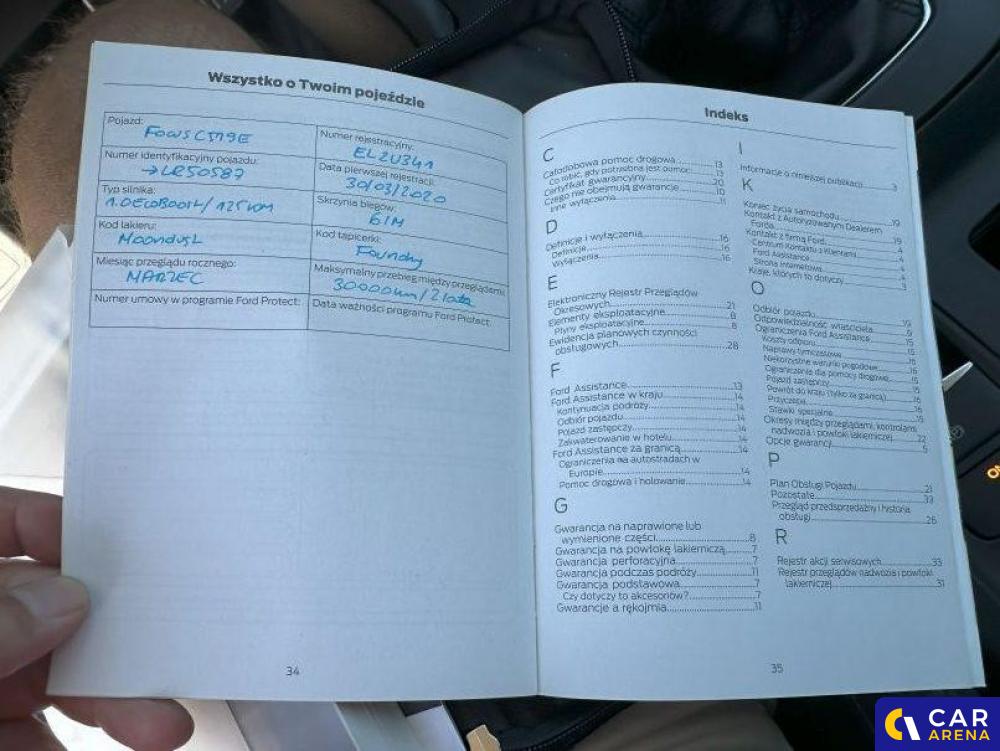 Wszystko o Twoim pojeździe
Pojazd:
Focus C519E
Numer rejestracyjny:
EL2U341
Numer identyfikacyjny pojazdu:
→LR50587
Data pierwszej rejestracji:
30/03/2020
Typ silnika:
1.0 ECOBOOST/125KM
Skrzynia biegów:
6/M
Kod lakieru:
Moondust
Kod tapicerki:
Foundry
Miesiąc przeglądu rocznego:
MARZEC
Maksymalny przebieg między przeglądami:
30000km/2 lata
Numer umowy w programie Ford Protect:
Data ważności programu Ford Protect:
34
Indeks
C
Całodobowa pomoc drogowa 13
Co robić, gdy potrzebna jest pomoc 13
Certyfikat gwarancyjny 20
Czego nie obejmują gwarancje 10
Inne wyłączenia 11
D
Definicje i wyłączenia 16
Definicje 16
Wyłączenia 16
E
Elektroniczny Rejestr Przeglądów
Okresowych 21
Elementy eksploatacyjne 8
Płyny eksploatacyjne 8
Ewidencja planowych czynności
obsługowych 28
F
Ford Assistance 13
Ford Assistance w kraju 14
Kontynuacja podróży 14
Odbiór pojazdu 14
Pojazd zastępczy 14
Zakwaterowanie w hotelu 14
Ford Assistance za granicą 14
Ograniczenia na autostradach w
Europie 14
Pomoc drogowa i holowanie 14
G
Gwarancja na naprawione lub
wymienione części 8
Gwarancja na powłokę lakierniczą 7
Gwarancja perforacyjna 7
Gwarancja podczas podróży 11
Gwarancja podstawowa 7
Czy dotyczy to akcesoriów? 7
Gwarancje a rękojmia 11
I
Informacje o niniejszej publikacji 3
K
Koniec życia samochodu 19
Kontakt z Autoryzowanym Dealerem
Forda 19
Kontakt z firmą Ford 4
Centrum Kontaktu z Klientami 4
Ford Assistance 4
Strona internetowa 4
Kraje, których to dotyczy
O
Odbiór pojazdu 19
Odpowiedzialność właściciela 9
Ograniczenia Ford Assistance 15
Koszty odbioru 15
Naprawy tymczasowe 15
Niekorzystne warunki pogodowe 16
Ograniczenia dla pomocy drogowej 15
Pojazd zastępczy 15
Powrót do kraju (tylko za granicą) 16
Przyczepa 16
Stawki specjalne 15
Okresy między przeglądami, kontrolami
nadwozia i powłoki lakierniczej 22
Opcje gwarancji 5
P
Plan Obsługi Pojazdu 21
Pozostałe 33
Przegląd przedsprzedażny i historia
obsługi 26
R
Rejestr akcji serwisowych 33
Rejestr przeglądów nadwozia i powłoki
lakierniczej 31
35
CAR
ARENA